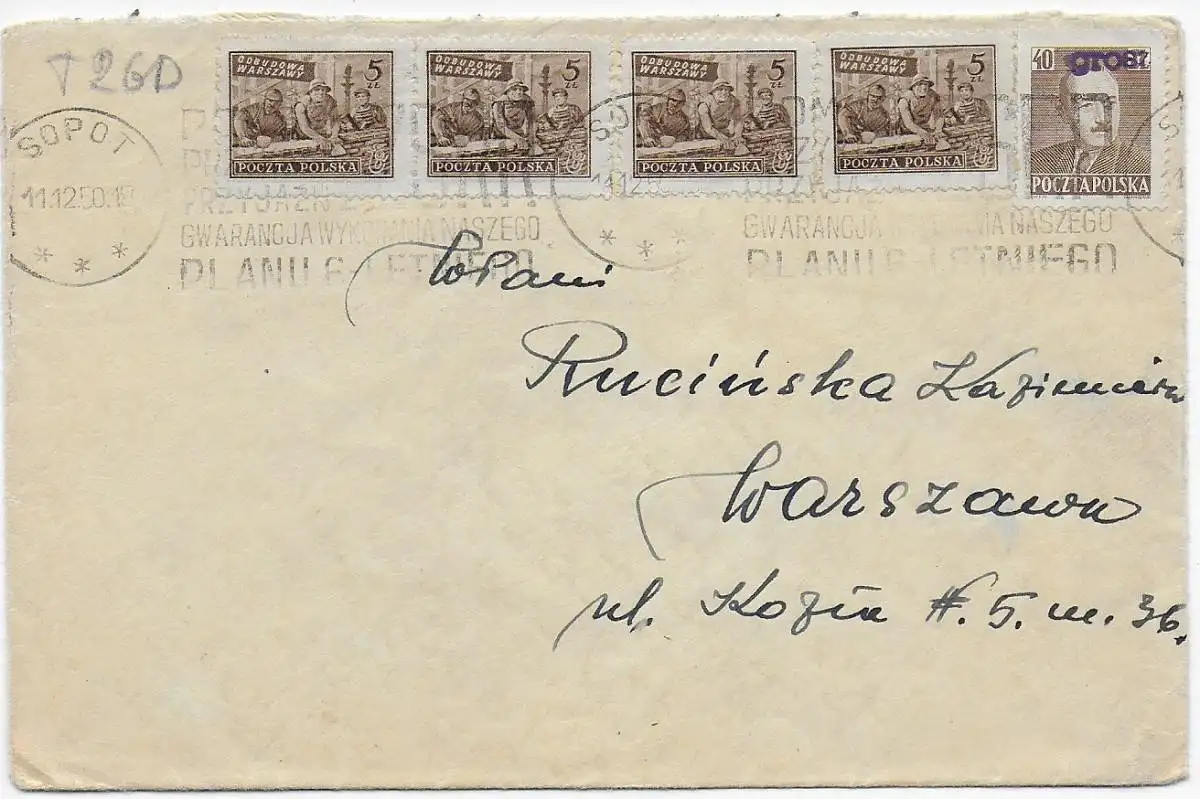 T 26D
ODBUDOWA WARSZAWY 5 ZŁ
POCZTA POLSKA
ODBUDOWA WARSZAWY 5 ZŁ
POCZTA POLSKA
ODBUDOWA WARSZAWY 5 ZŁ
POCZTA POLSKA
ODBUDOWA WARSZAWY 5 ZŁ
POCZTA POLSKA
40 groszy
POCZTA POLSKA
SOPOT
11.12.50
PRZYJAŹŃ
GWARANCJĄ WYKONANIA NASZEGO
PLANU 6-LETNIEGO
GWARANCJĄ WYKONANIA NASZEGO
PLANU 6-LETNIEGO
WPani
Rucińska Kazimiera
Warszawa
ul. Kozia #. 5. m. 36.